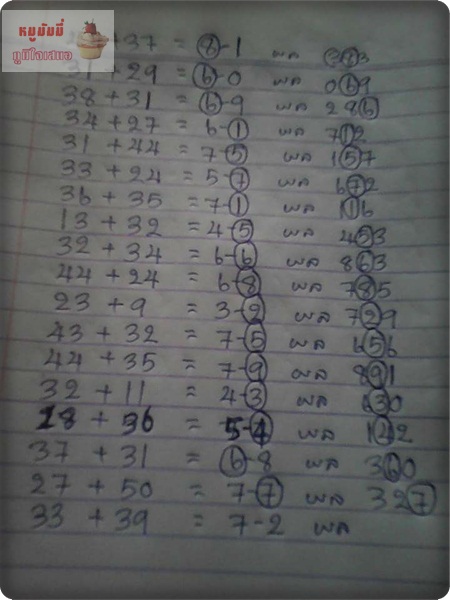 หมูมัมมี่
มูมีโจเสมอ
+37 = 8-1 ผล 383
31+29 = 6-0 ผล 069
38+31 = 6-9 ผล 286
34+27 = 6-1 ผล 712
31+44 = 7-5 ผล 157
33+24 = 5-7 ผล 672
36+35 = 7-1 ผล 116
13+32 = 4-5 ผล 453
32+34 = 6-6 ผล 863
44+24 = 6-8 ผล 785
23+9 = 3-2 ผล 729
43+32 = 7-5 ผล 656
44+35 = 7-9 ผล 891
32+11 = 4-3 ผล 630
18+36 = 5-4 ผล 142
37+31 = 6-8 ผล 360
27+50 = 7-7 ผล 327
33+39 = 7-2 ผล